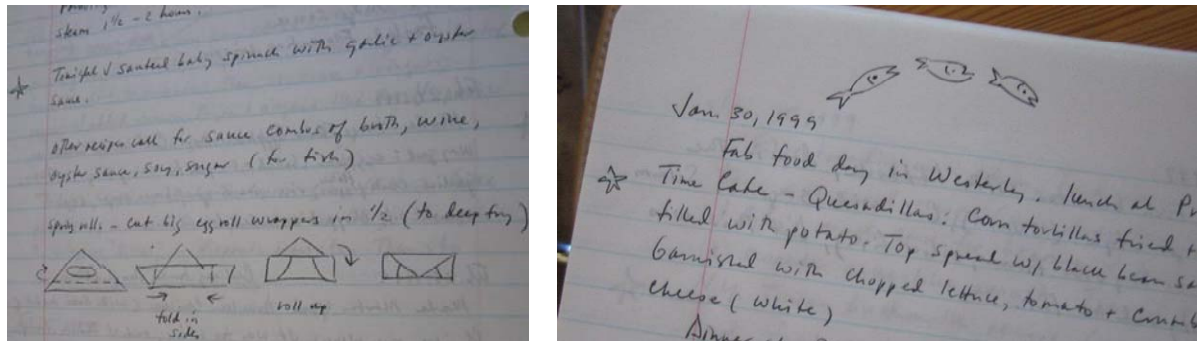 steam 1½ - 2 hours.
Tonight sauteed baby spinach with garlic + oyster
sauce.
other recipes call for sauce combos of broth, wine,
oyster sauce, soy, sugar (for fish)
spring rolls - cut big eggroll wrappers in ½ (to deep fry)
fold in
sides
roll up
Jan 30, 1999
Fab food day in Westerley. lunch at
Time Cafe - Quesadillas: Corn tortillas fried +
filled with potato. Top spread w/ black bean
Garnished with chopped lettuce, tomato +
cheese (white)
Dinner